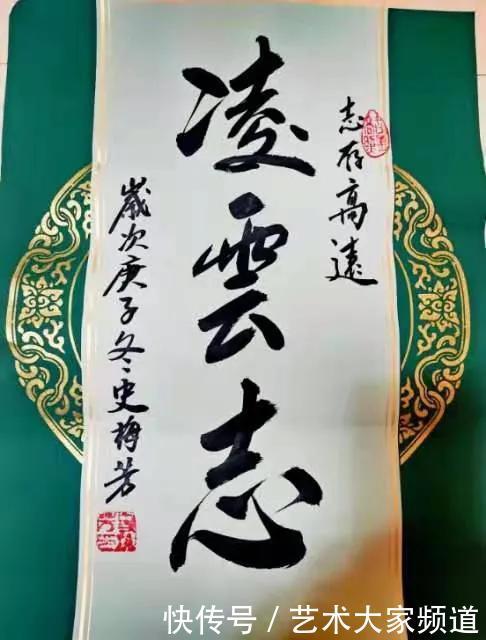 志存高遠
凌雲志
歲次庚子冬史梅芳
快传号 / 艺术大家频道